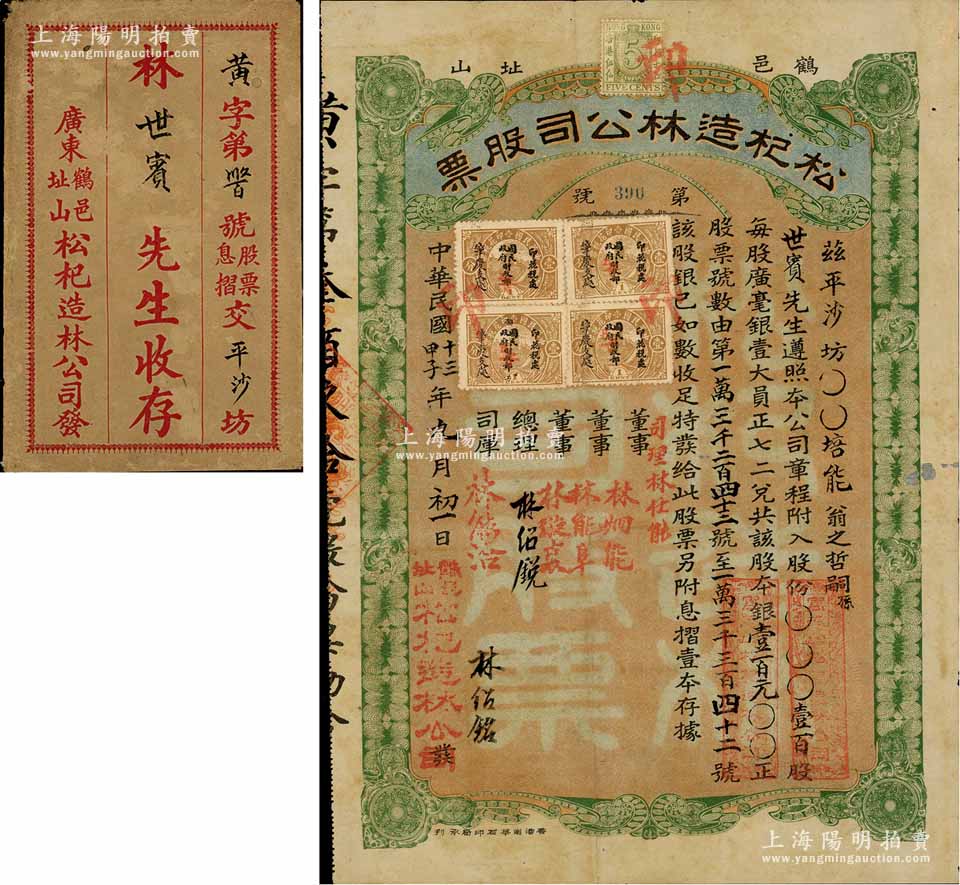 上海陽明拍賣
www.yangmingauction.com
黃字第號股票息摺交平沙坊
林世賓先生收存
廣東鶴邑址山松杞造林公司發
鶴邑
址山
HONG KONG
5
FIVE CENTS
松杞造林公司股票
第 390 號
茲平沙坊〇〇培能翁之哲嗣孫
世賓先生遵照本公司章程附入股份〇〇〇〇壹百股
每股廣毫銀壹大員正七二兌共該股本銀壹百元〇〇正
股票號數由第一萬三千二百四十三號至一萬三千三百四十二號
該股銀已如數收足特發給此股票另附息摺壹本存據
國民政府財政部
印花稅處
司理林仕能
董事
董事
董事
總理 林紹銳
司庫
林紹銘
中華民國十三甲子年九月初一日
發
香港南華石印局承刊
上海陽明拍賣
www.yangmingauction.com
上海陽明拍賣
www.yangmingauction.com